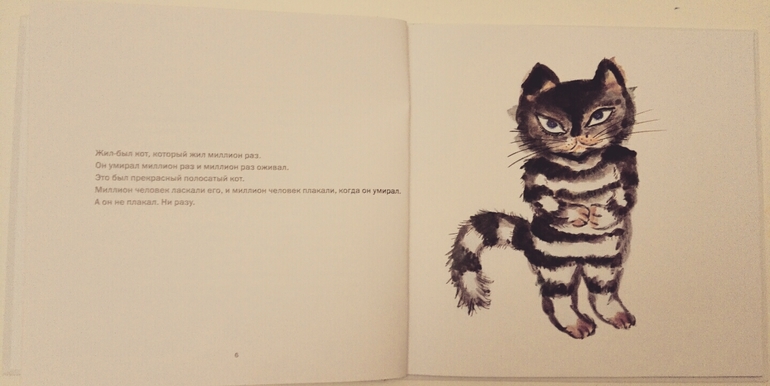 Жил-был кот, который жил миллион раз.
Он умирал миллион раз и миллион раз оживал.
Это был прекрасный полосатый кот.
Миллион человек ласкали его, и миллион человек плакали, когда он умирал.
А он не плакал. Ни разу.
6